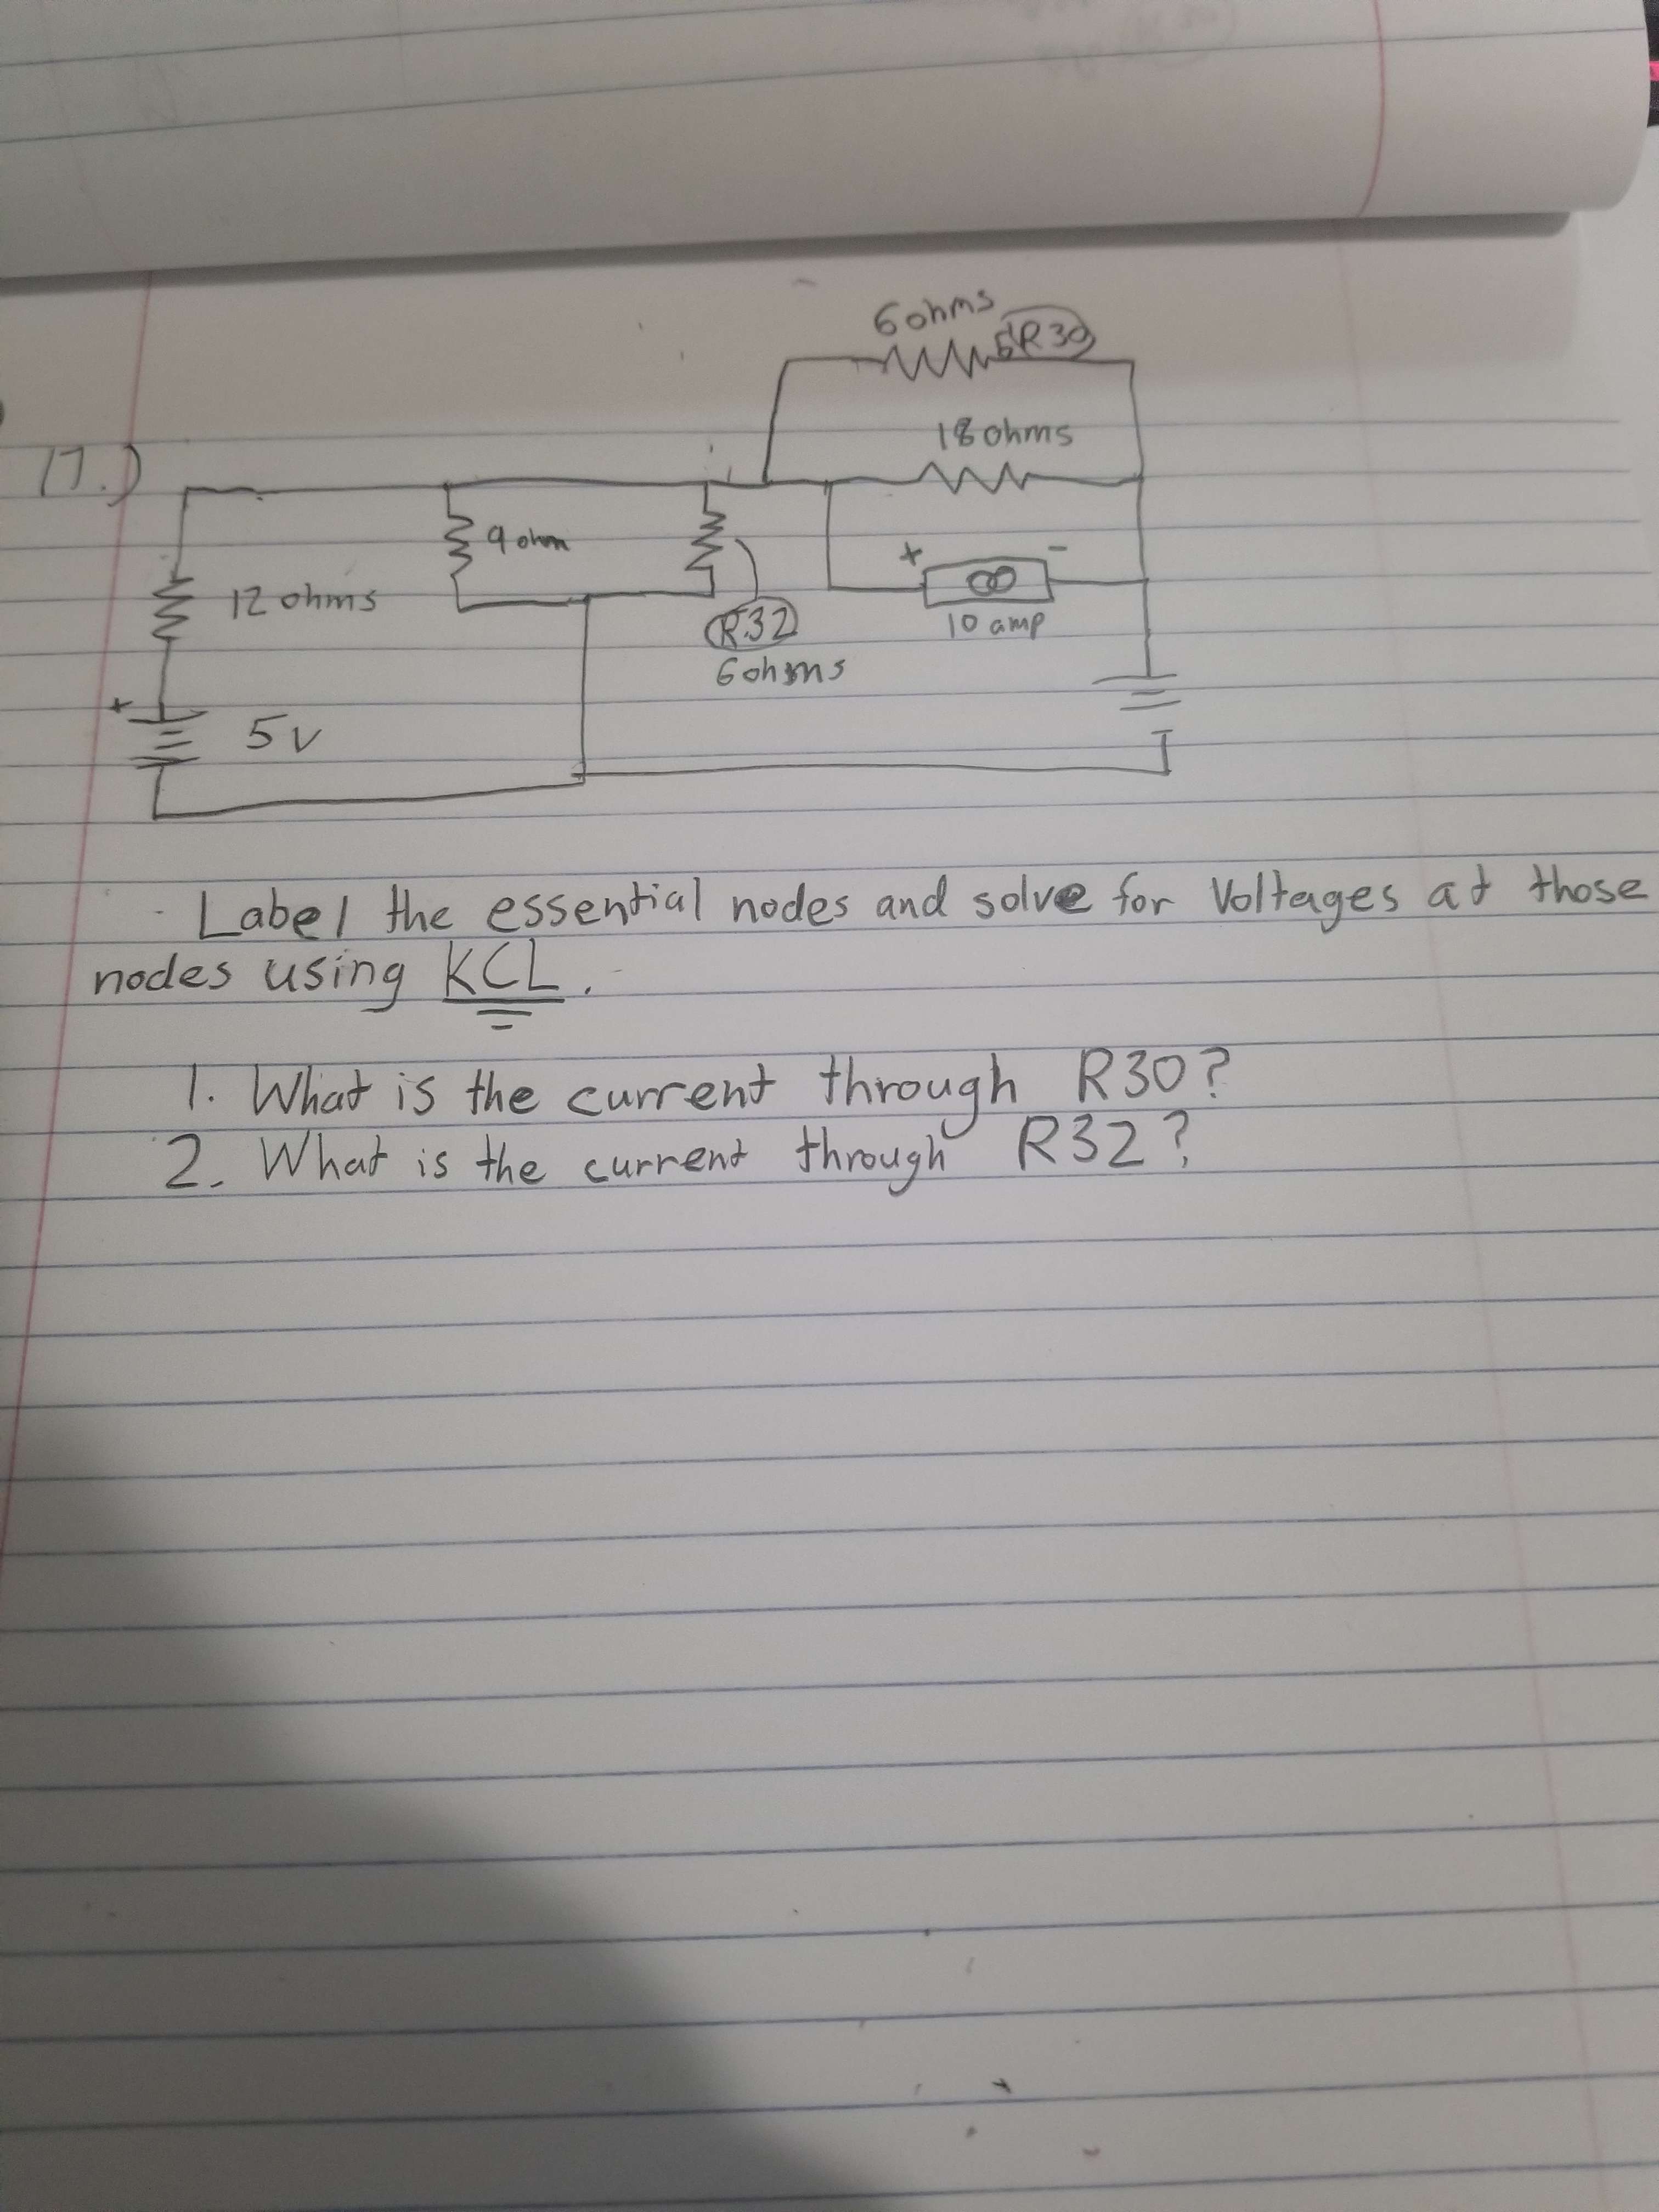 6 ohms
R30
18 ohms
17.)
9 ohm
+ -
12 ohms
R32
10 amp
6 ohms
+
5 v
Label the essential nodes and solve for Voltages at those
nodes using KCL.
1. What is the current through R30?
2. What is the current through R32?